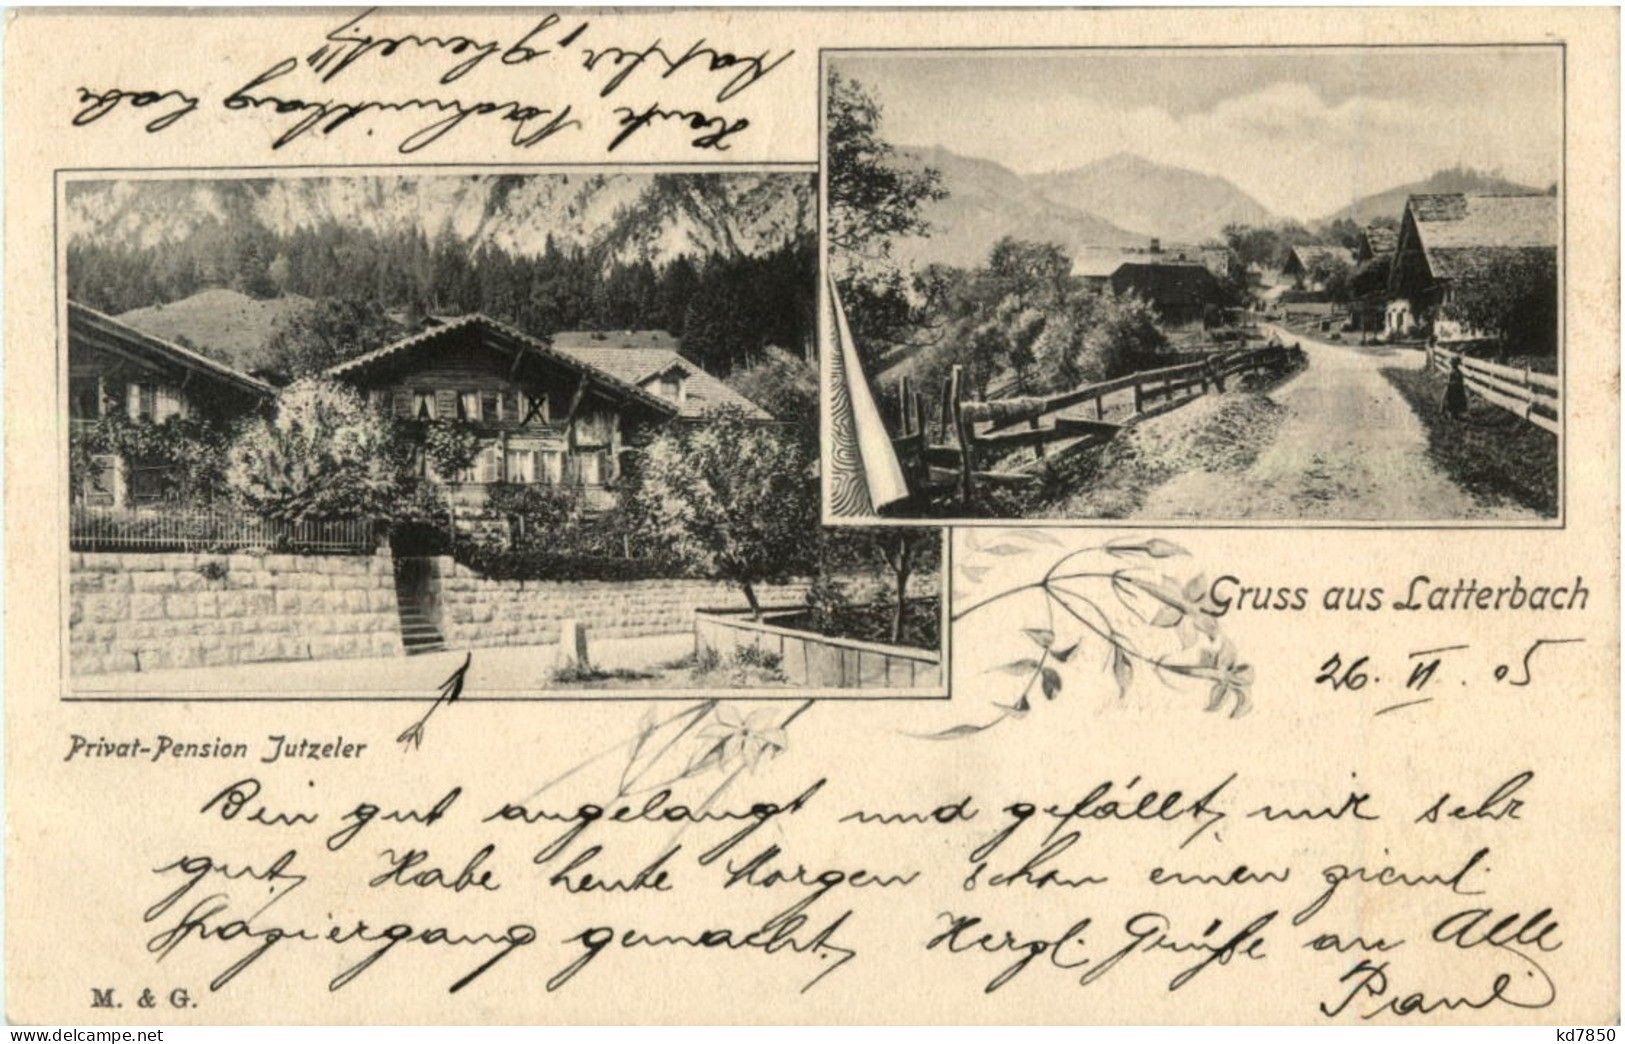 Heute Nachmittag habe
Gruss aus Latterbach
26. VI. 05
Privat-Pension Jutzeler
Bin gut angelangt und gefällt mir sehr
gut. Habe heute Morgen schon einen zieml.
Spaziergang gemacht. Herzl. Grüße an Alle
Paul
M. & G.
www.delcampe.net
kd7850